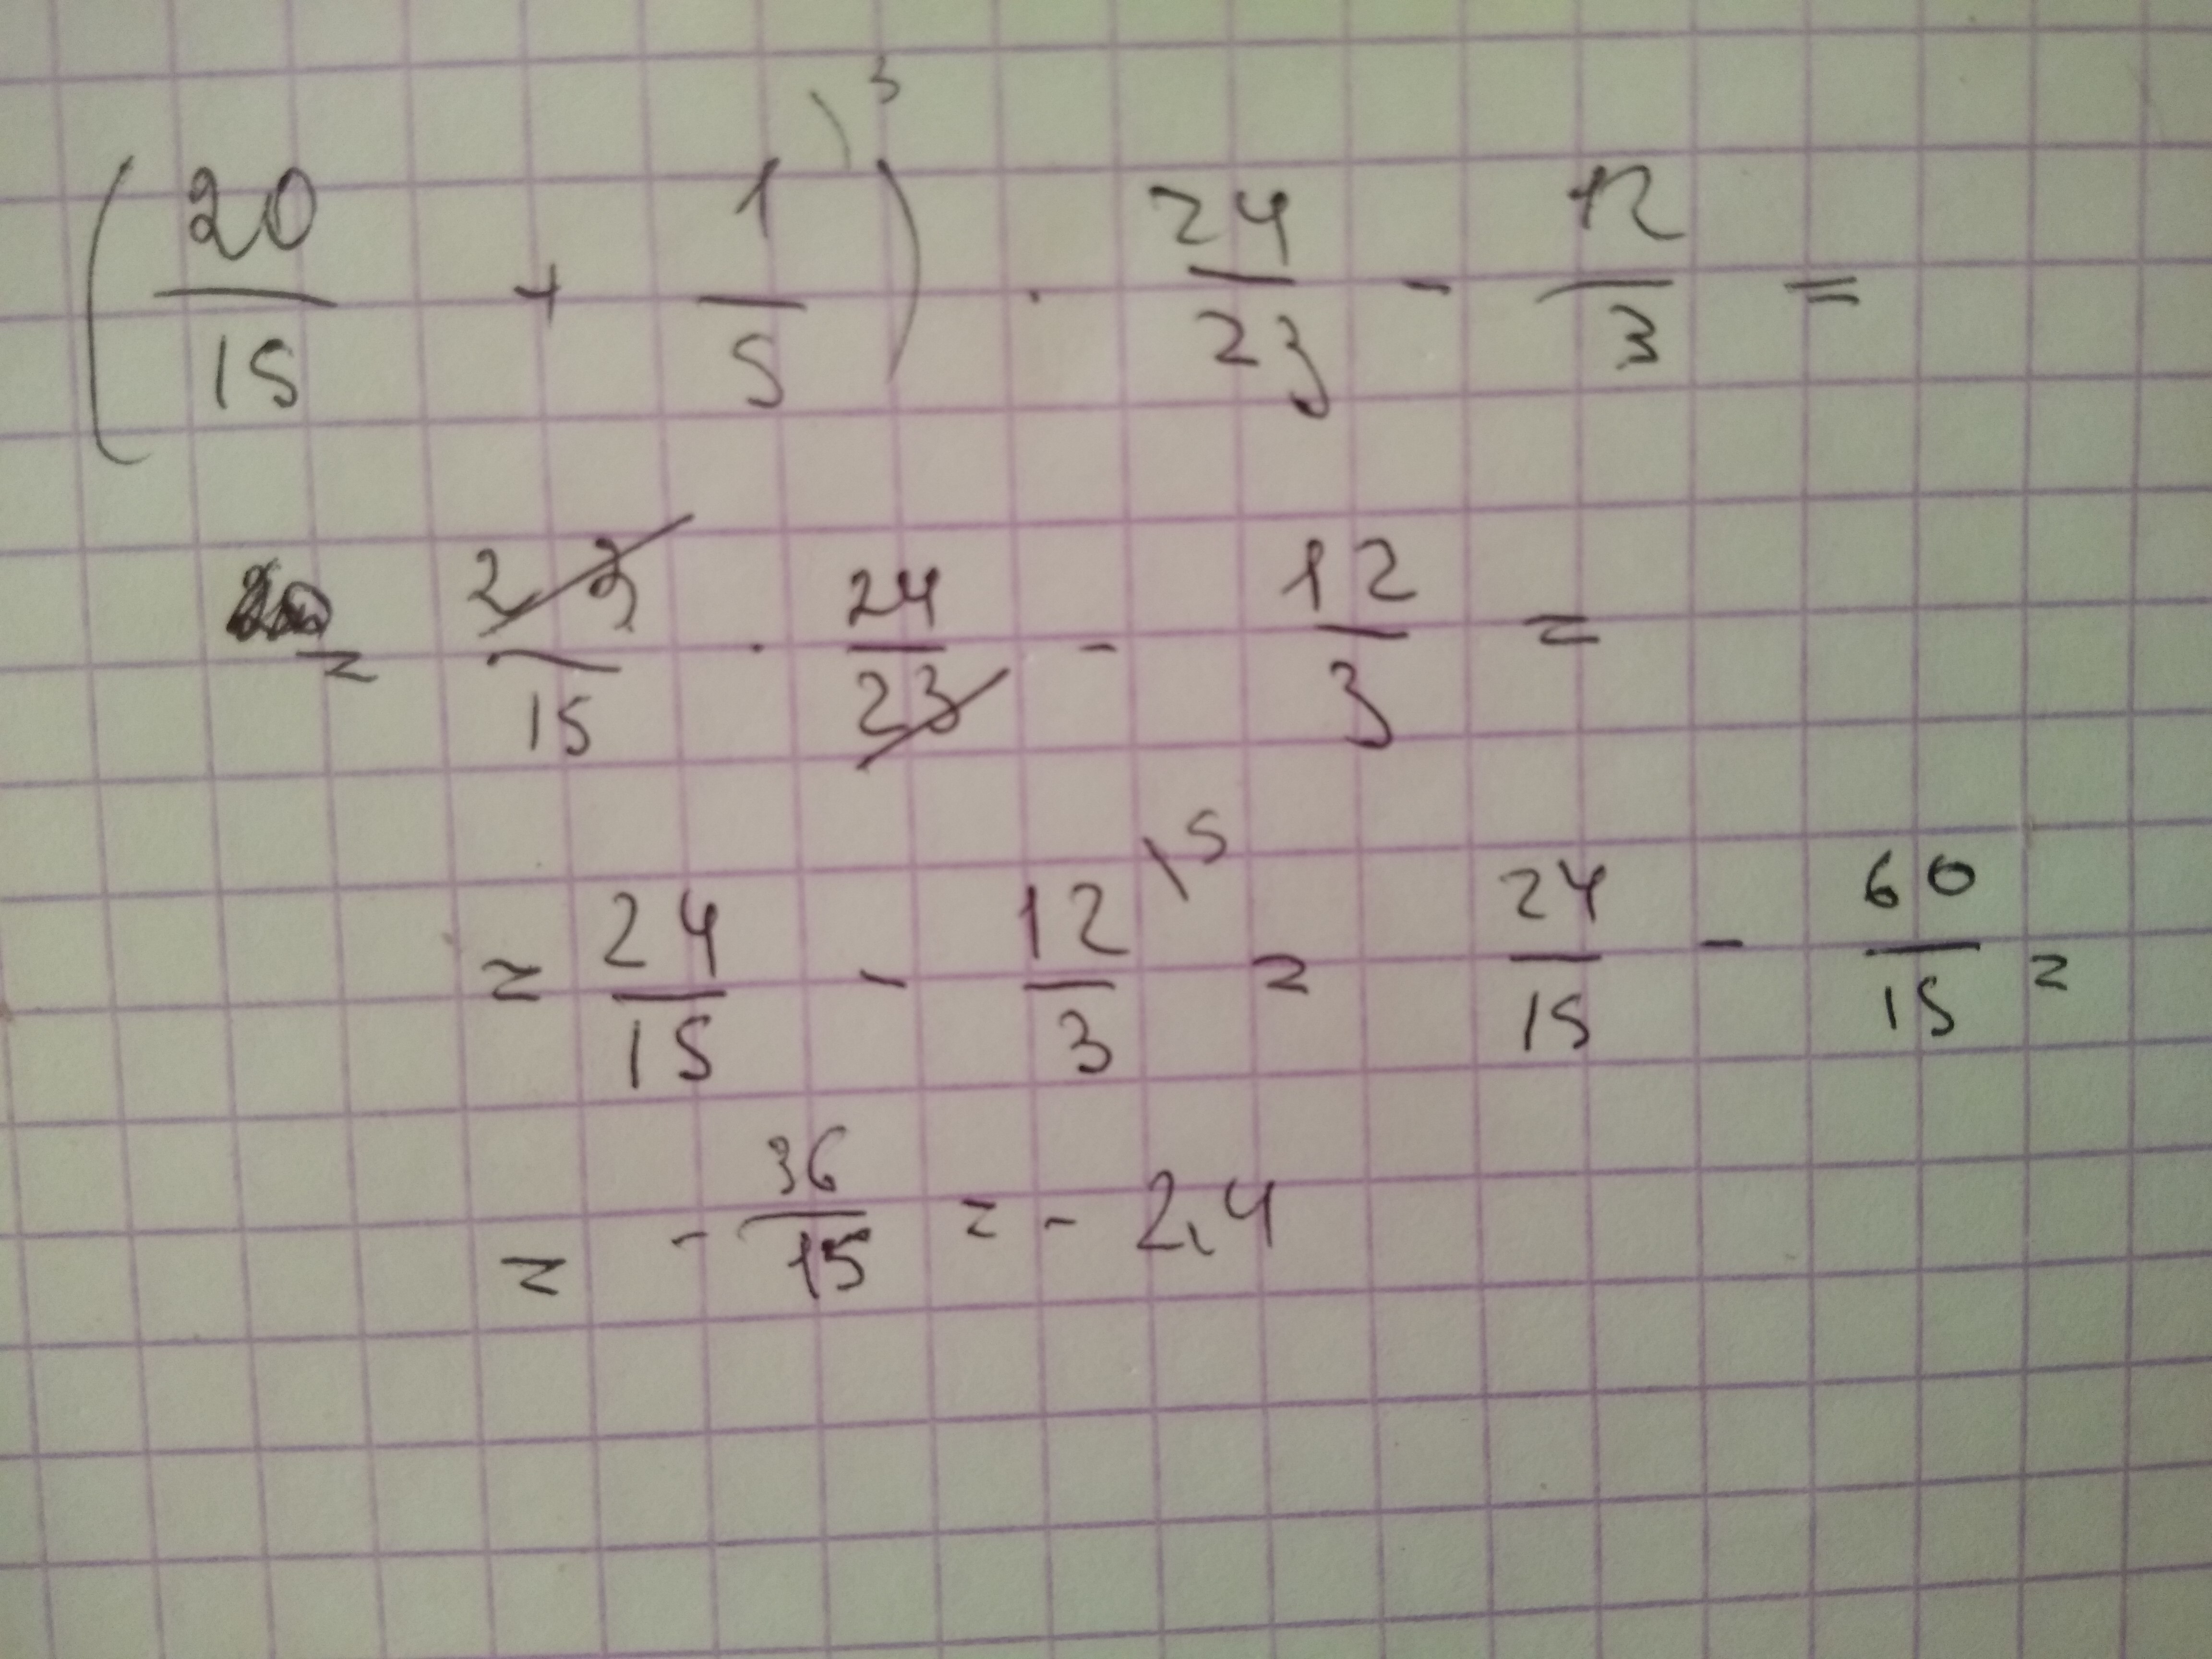 (20/15 + 1/5\3) · 24/23 - 12/3 =
= 23/15 · 24/23 - 12/3 =
= 24/15 - 12/3\5 = 24/15 - 60/15 =
= - 36/15 = - 2,4